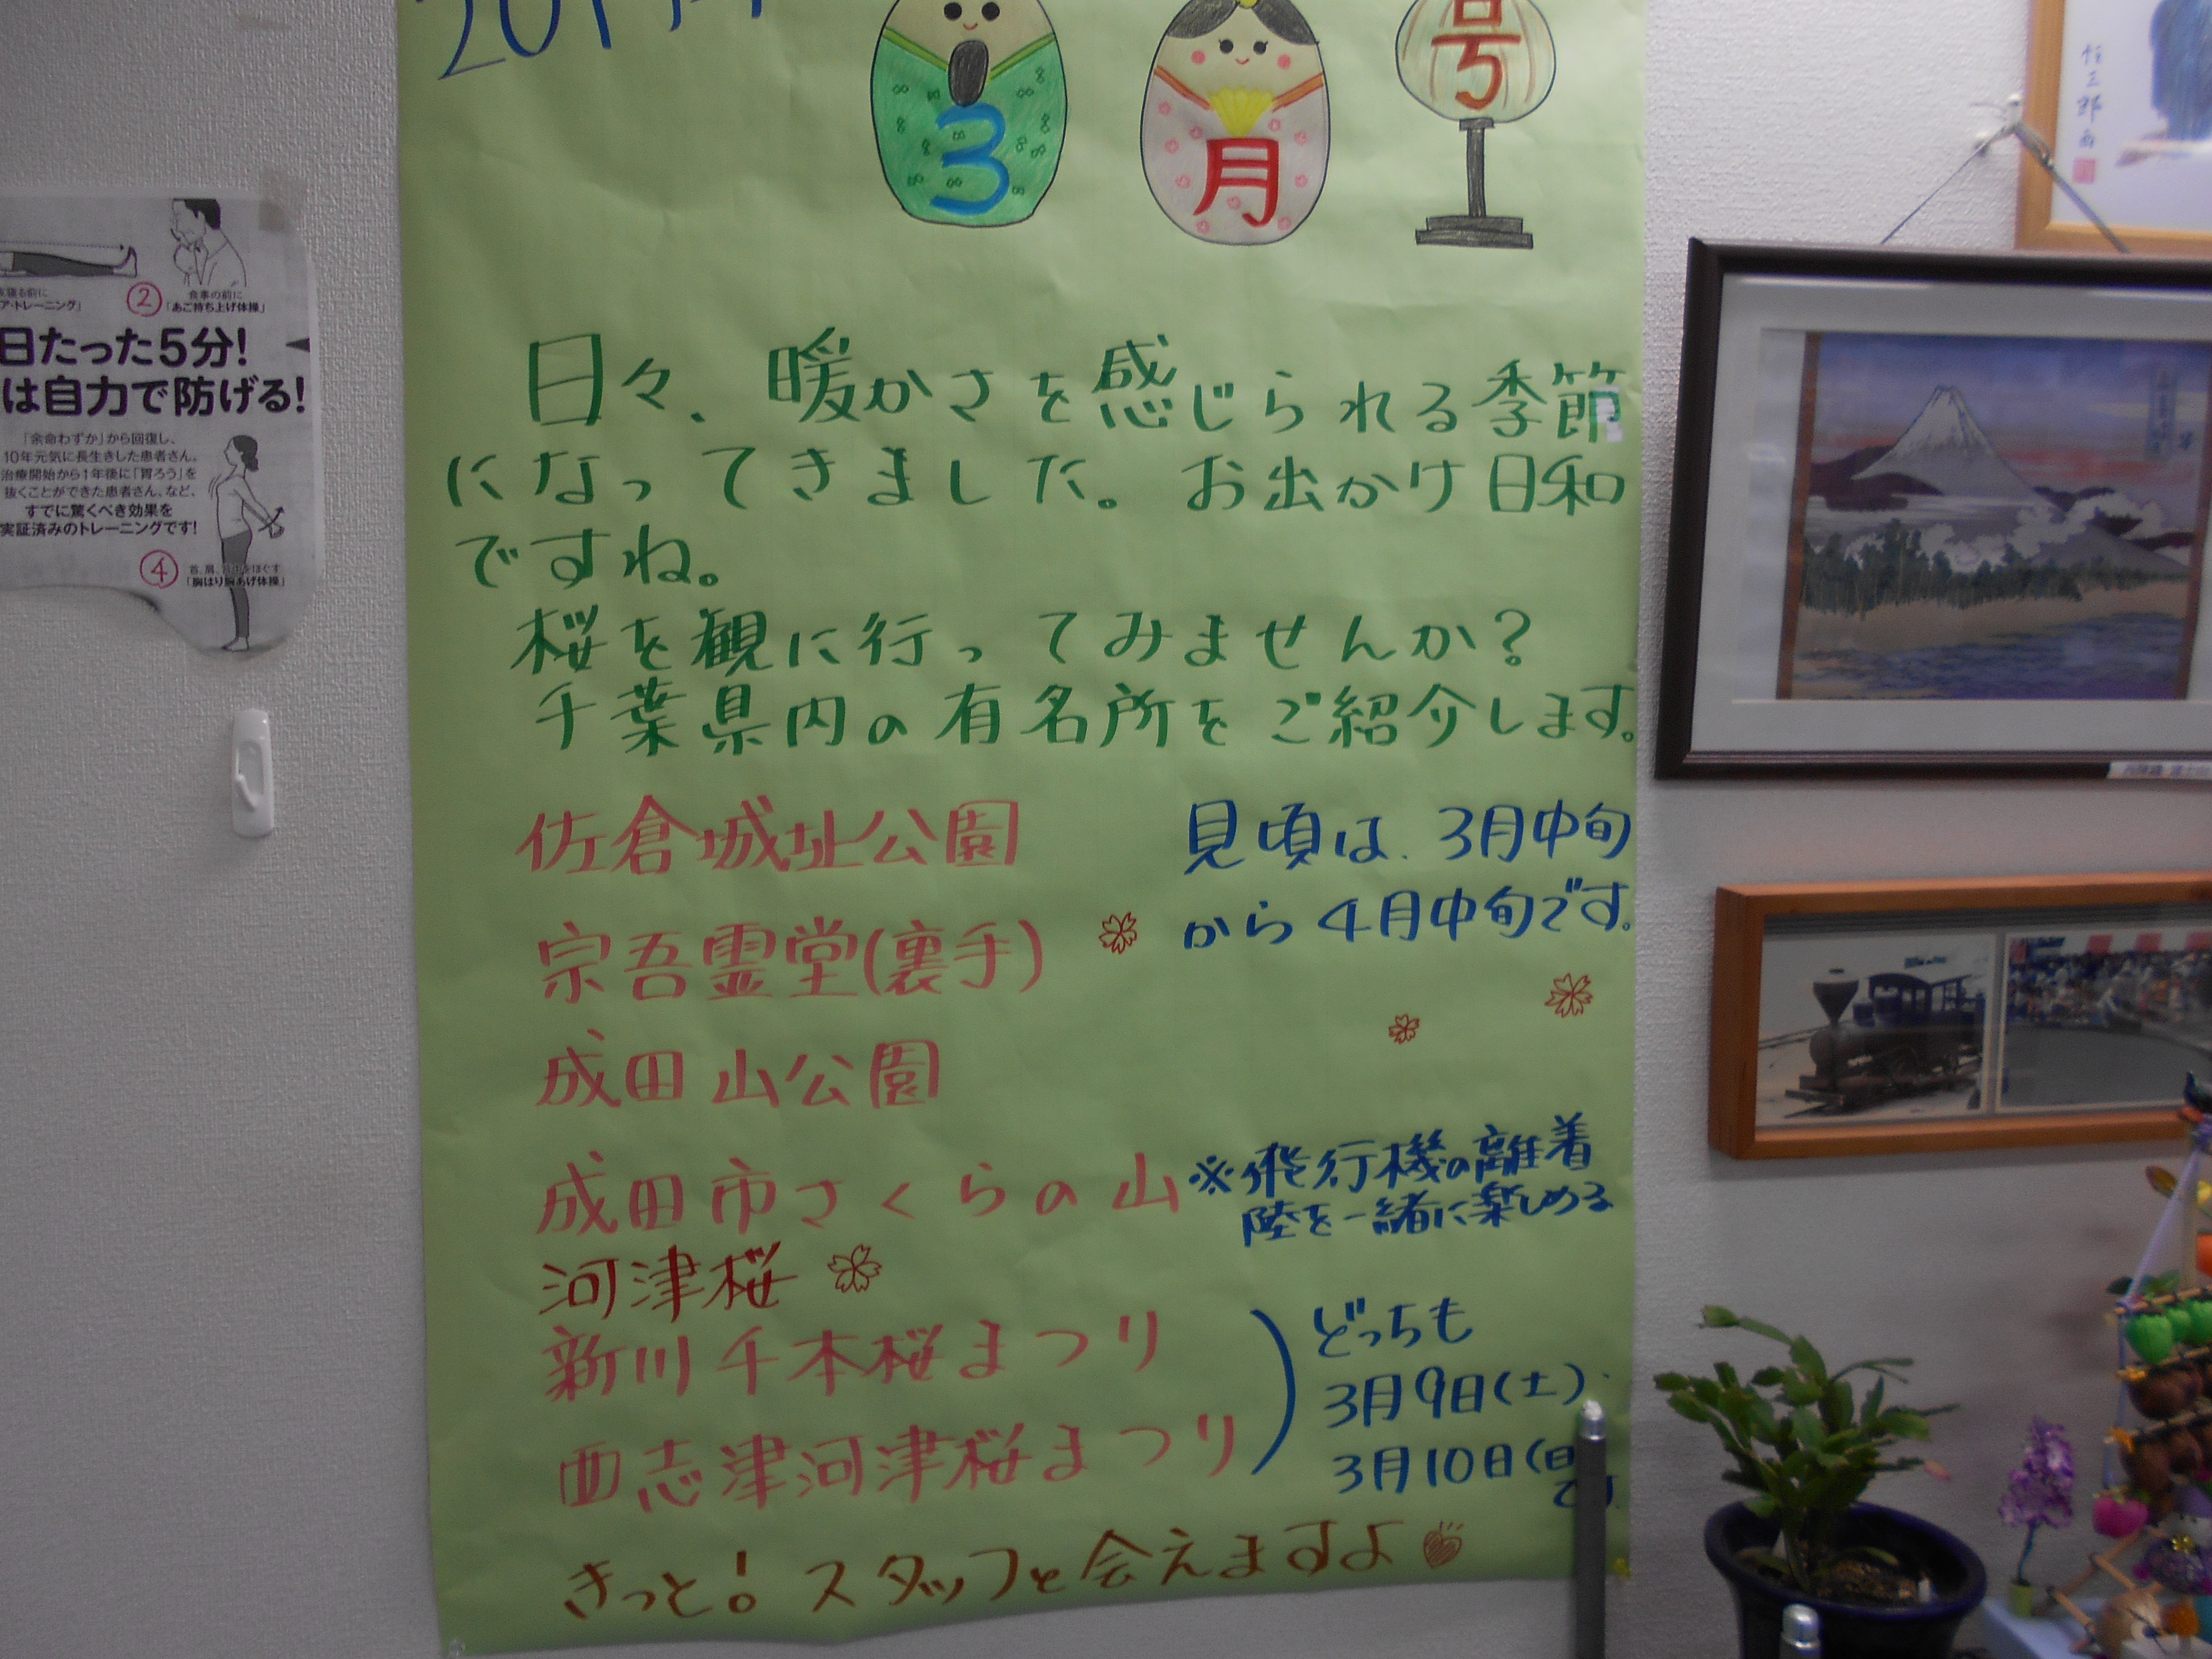 3月号
日々、暖かさを感じられる季節
になってきました。お出かけ日和
ですね。
桜を観に行ってみませんか？
千葉県内の有名所をご紹介します。
佐倉城址公園
見頃は、3月中旬
から4月中旬です。
宗吾霊堂(裏手)
成田山公園
成田市さくらの山
※飛行機の離着
陸を一緒に楽しめる
河津桜
新川千本桜まつり
西志津河津桜まつり
どっちも
3月9日(土)
3月10日(日
きっと!スタッフと会えますよ
②
食事の前に
「あご持ち上げ体操」
ア・トレーニング」
日たった5分!
は自力で防げる!
「余命わずか」から回復し、
10年元気に長生きした患者さん。
治療開始から1年後に「胃ろう」を
抜くことができた患者さん、など、
すでに驚くべき効果を
実証済みのトレーニングです!
④
「胸はり腕あげ体操」